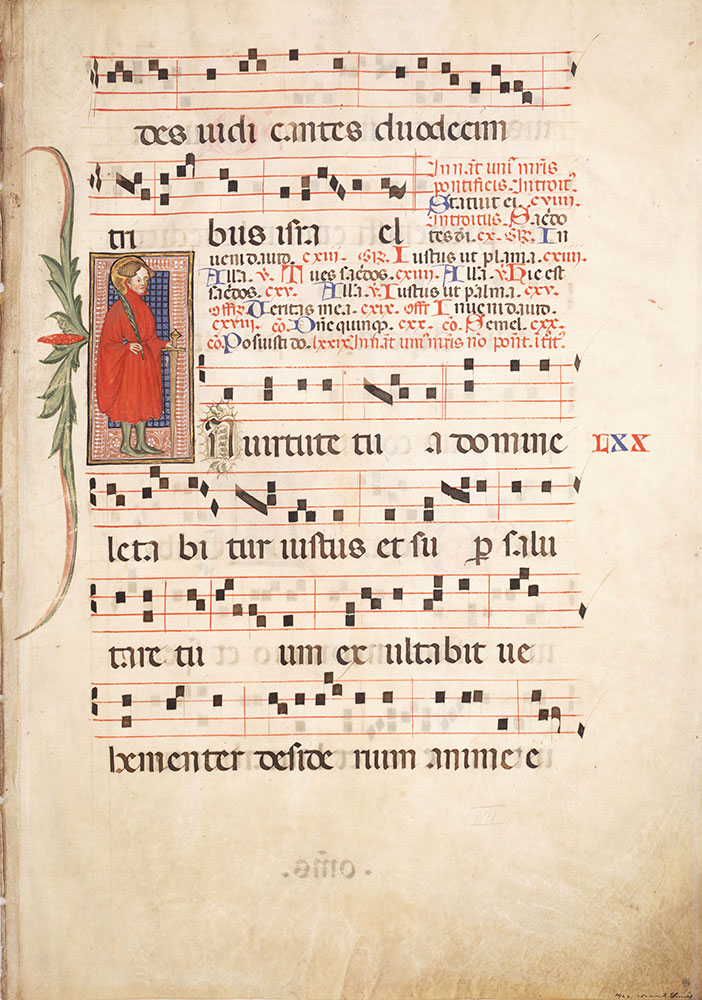 des iudi cantes duodecim
In nat̄ uni͛ mr̄is
pontificis. Introit᷒.
Statuit ei. cviii.
Introitus. Sac̄do
tri bus isra el tes dī. cx. GR. In
ueni dauid. cxiii. GR. Iustus ut palma. cxiiii.
Alla. v̄. Tu es sac̄dos. cxiiii. Alla. v̄. Hic est
sac̄dos. cxv. Alla. v̄. Iustus ut palma. cxv.
offR̄ Ueritas mea. cxix. offR̄ Inueni dauid.
cxviii. cō. Dn̄e quinq₃. cxx. cō. Semel. cxx.
cō. Posuisti dn̄o. lxxix. In nat̄ uni͛ mr̄is nō pont. Ītit̄.
In uirtute tu a domine LXX
leta bi tur iustus et su p̱ salu
tare tu um exultabit ue
hementer deside rium anime e